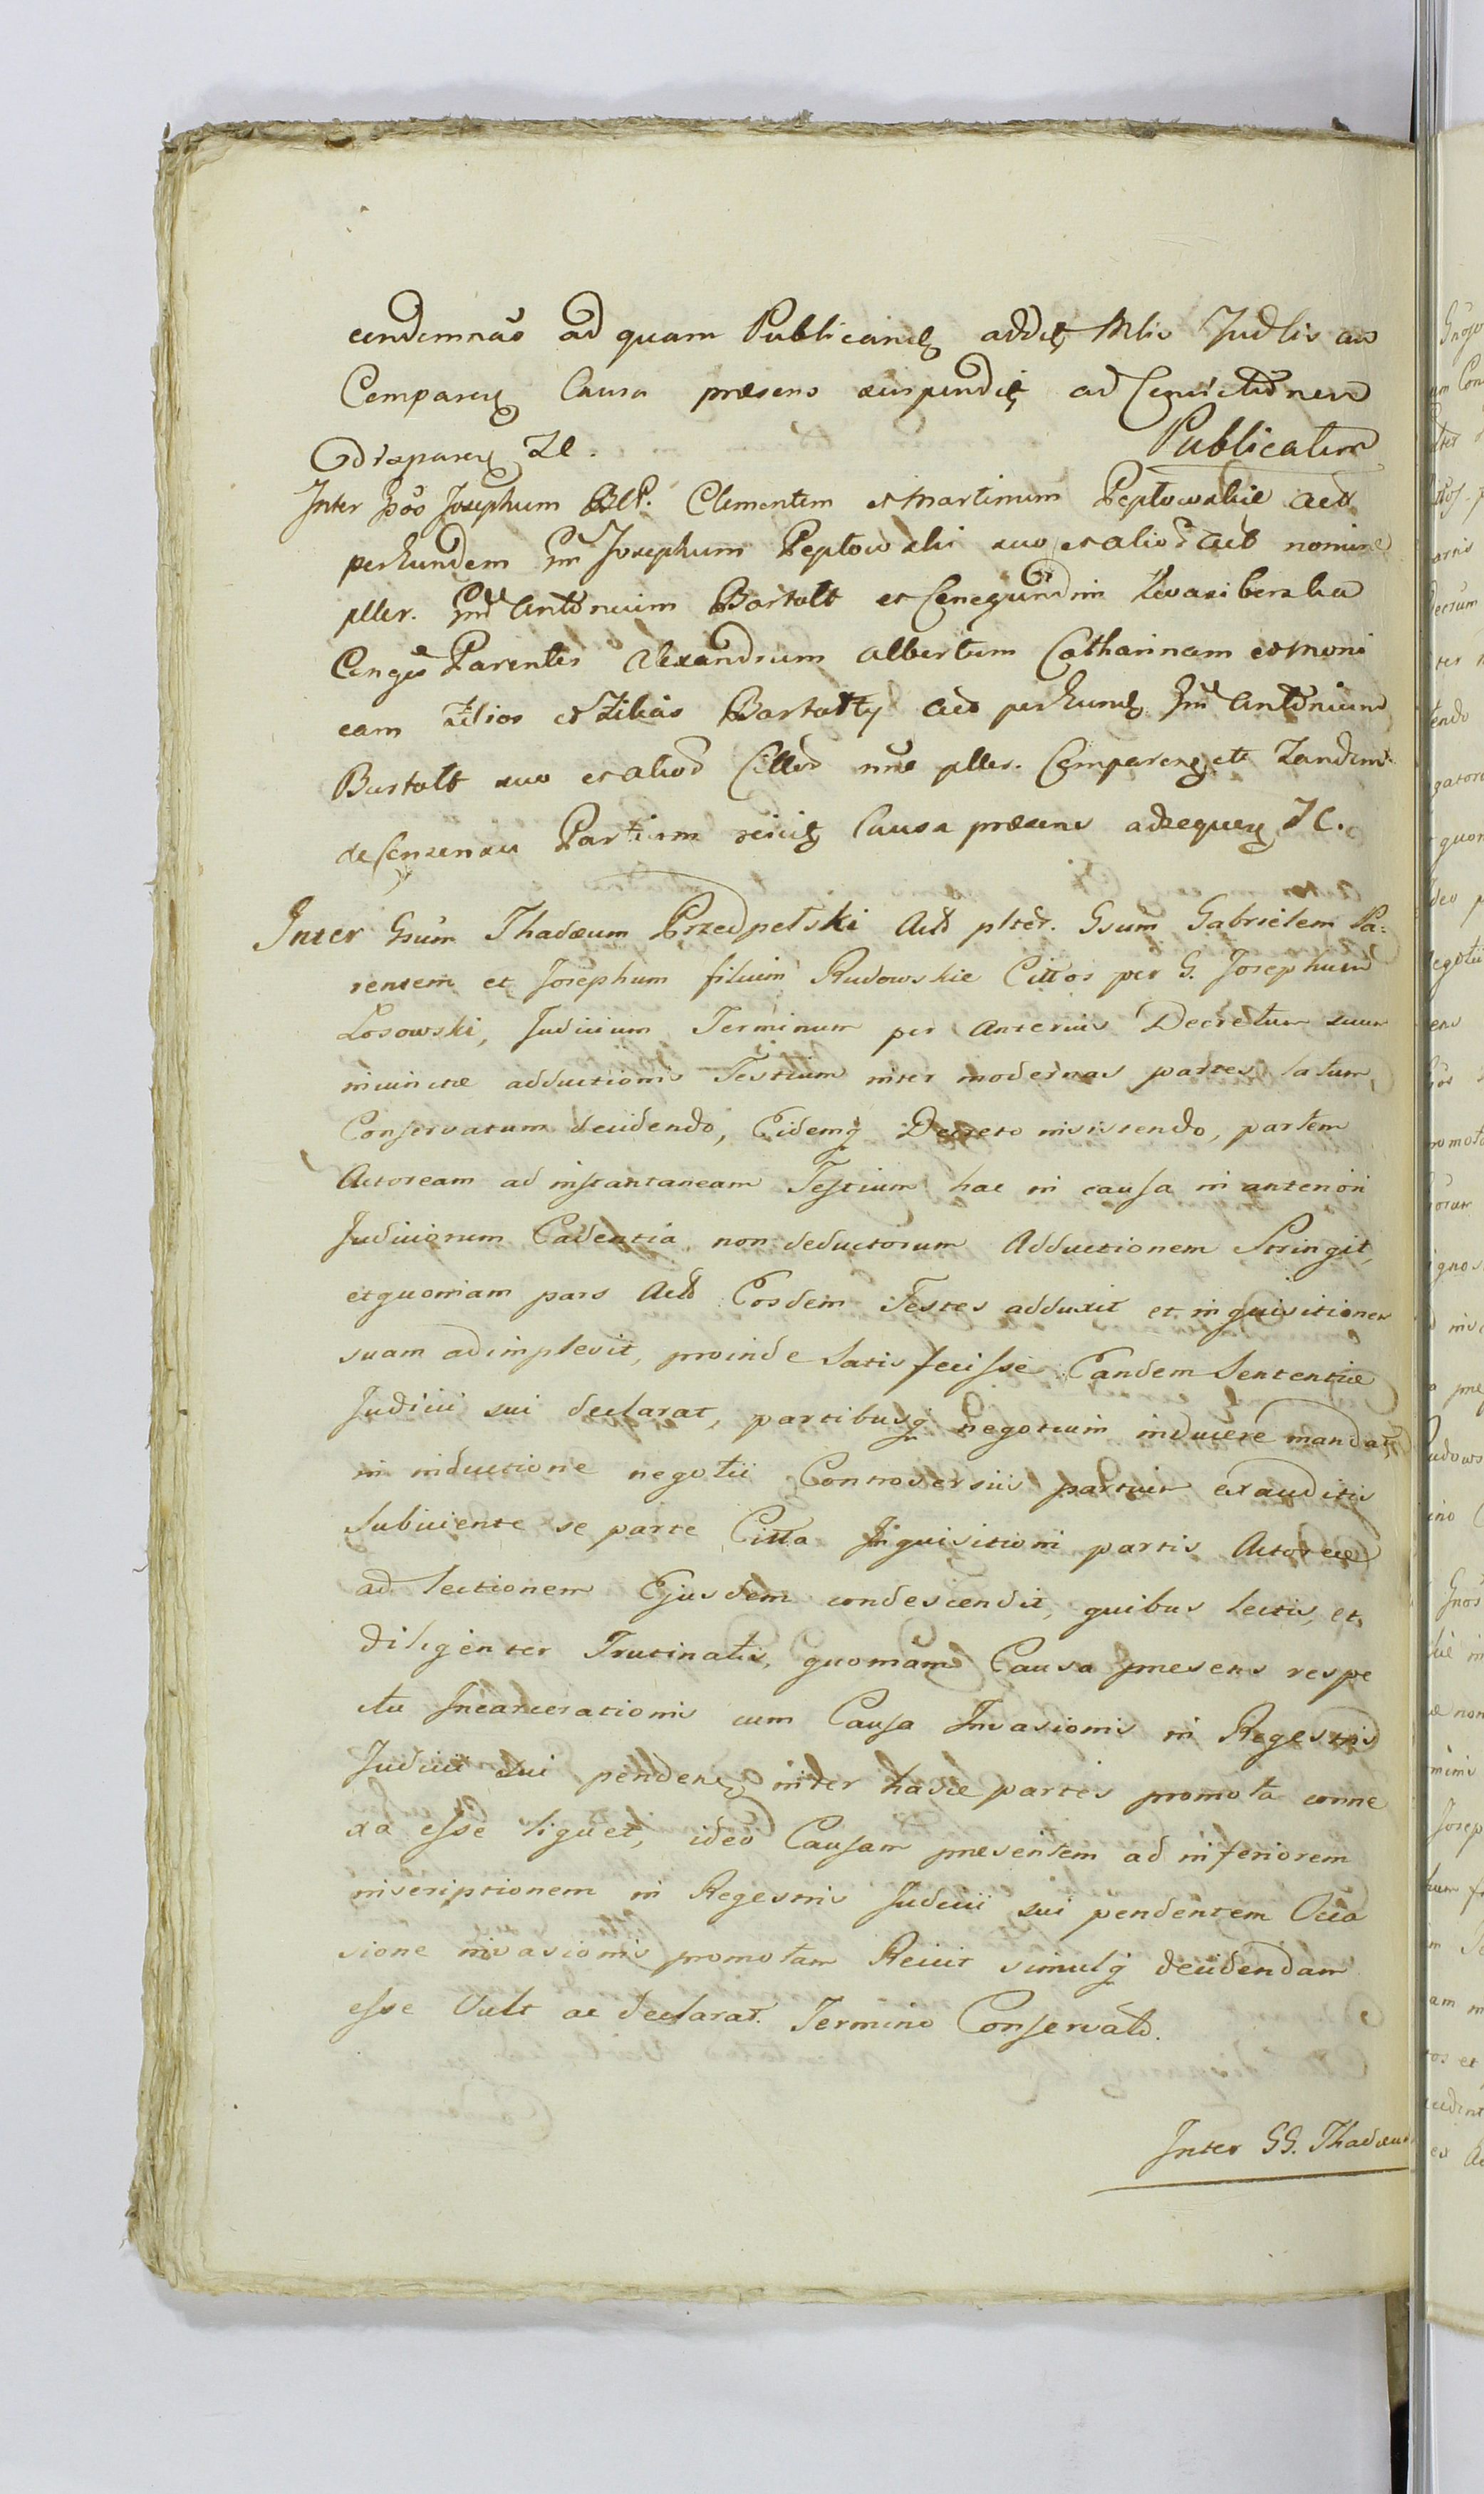 condemnāo ad quam Publicandę addit Mlis Judlis ad
Comparenę Causa præsens suspenditę ad Convictionem
Disparenę Ze. Publicatum
Inter Gsos Josephum Clementem et Martinum Peptowskie Act
per Eundem Gm Josephum Peptowski suo et aliod Act nomine
pller. Gm Antonium Bartolt et Cenegundim
Conges Parentes Alexandrum Albertum Catharinam et Moni
cam Filios et Filias Bartolty Act per Eundę Gm Antonium
Bartolt suo et aliod Cittod nne pller. Comparenę etc Tandem
de Consensu Partium reiicitę Causa præsens adsequenę
Inter Gsum Thadæum Przedpełski Act plter. Gsum Gabrielem Pa:
rentem et Josephum filium Rudowskie Cittos per G. Josephum
Losowski, Judicium Terminum per Anterius Decretum suum
iniunctæ adductionis Testium inter modernas partes latum,
Conservatum decidendo, Eidemq Decreto insistendo, partem
Actoream ad instantaneam Testium hac in causa in anteriori
Judiciorum Cadentia non deductorum Adductionem Stringit,
et quoniam pars Act Eosdem Testes adduxit et inquisitionem
suam adimplevit, proinde Satisfecisse Eandem Sententiæ
Judicii sui declarat, partibusq negotium inducere mandat,
in inductione negotii Controversiis partium exauditis
Subiiciente se parte Citta Inquisitioni partis Actoreæ
ad lectionem Ejusdem condescendit, quibus lectis, et
diligenter Trutinatis, quoniam Causa præsens respe
ctu Incarcerationis cum Causa Invasionis in Regestris
Judicii sui pendenę inter hasce partes promota conne
xa esse liquet, ideo Causam præsentem ad inferiorem
inscriptionem in Regestris Judicii sui pendentem Occa
sione invasionis promotam Reiicit simulq decidendam
esse Vult ac declarat. Termino Conservato.
Inter GG. Thadæum